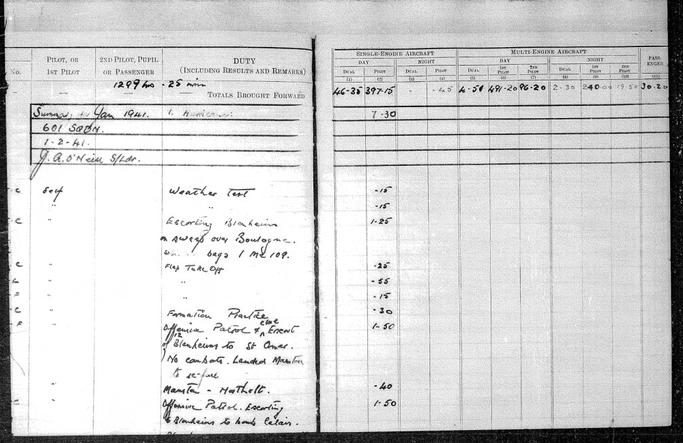 SINGLE-ENGINE AIRCRAFT MULTI-ENGINE AIRCRAFT
PILOT, OR 2ND PILOT, PUPIL DUTY DAY NIGHT DAY NIGHT PASS-
No. 1ST PILOT OR PASSENGER (INCLUDING RESULTS AND REMARKS) DUAL PILOT DUAL PILOT DUAL 1ST PILOT 2ND PILOT DUAL 1ST PILOT 2ND PILOT ENGER
(1) (2) (3) (4) (5) (6) (7) (8) (9) (10) (11)
1299 hrs - 25 min
— — TOTALS BROUGHT FORWARD 46-35 397-15 -45 4-50 491-20 96-20 2-30 240-00 19-50 30-20
Summary for Jan 1941. 1. Hurricane 7-30
601 SQDN.
1-2-41.
J.A.O'Neill S/Ldr.
Self Weather Test -15
" " -15
" Escorting Blenheims 1-25
on sweep over Boulogne.
bags 1 Me 109.
" Flap Take Off -25
" " -55
" " -15
" Formation Practice -30
" Offensive Patrol & close Escort 1-50
of 12 Blenheims to St Omer.
No combats. Landed Manston
to re-fuel
" Manston - Northolt. -40
" Offensive Patrol. Escorting 1-50
6 Blenheims to bomb Calais.